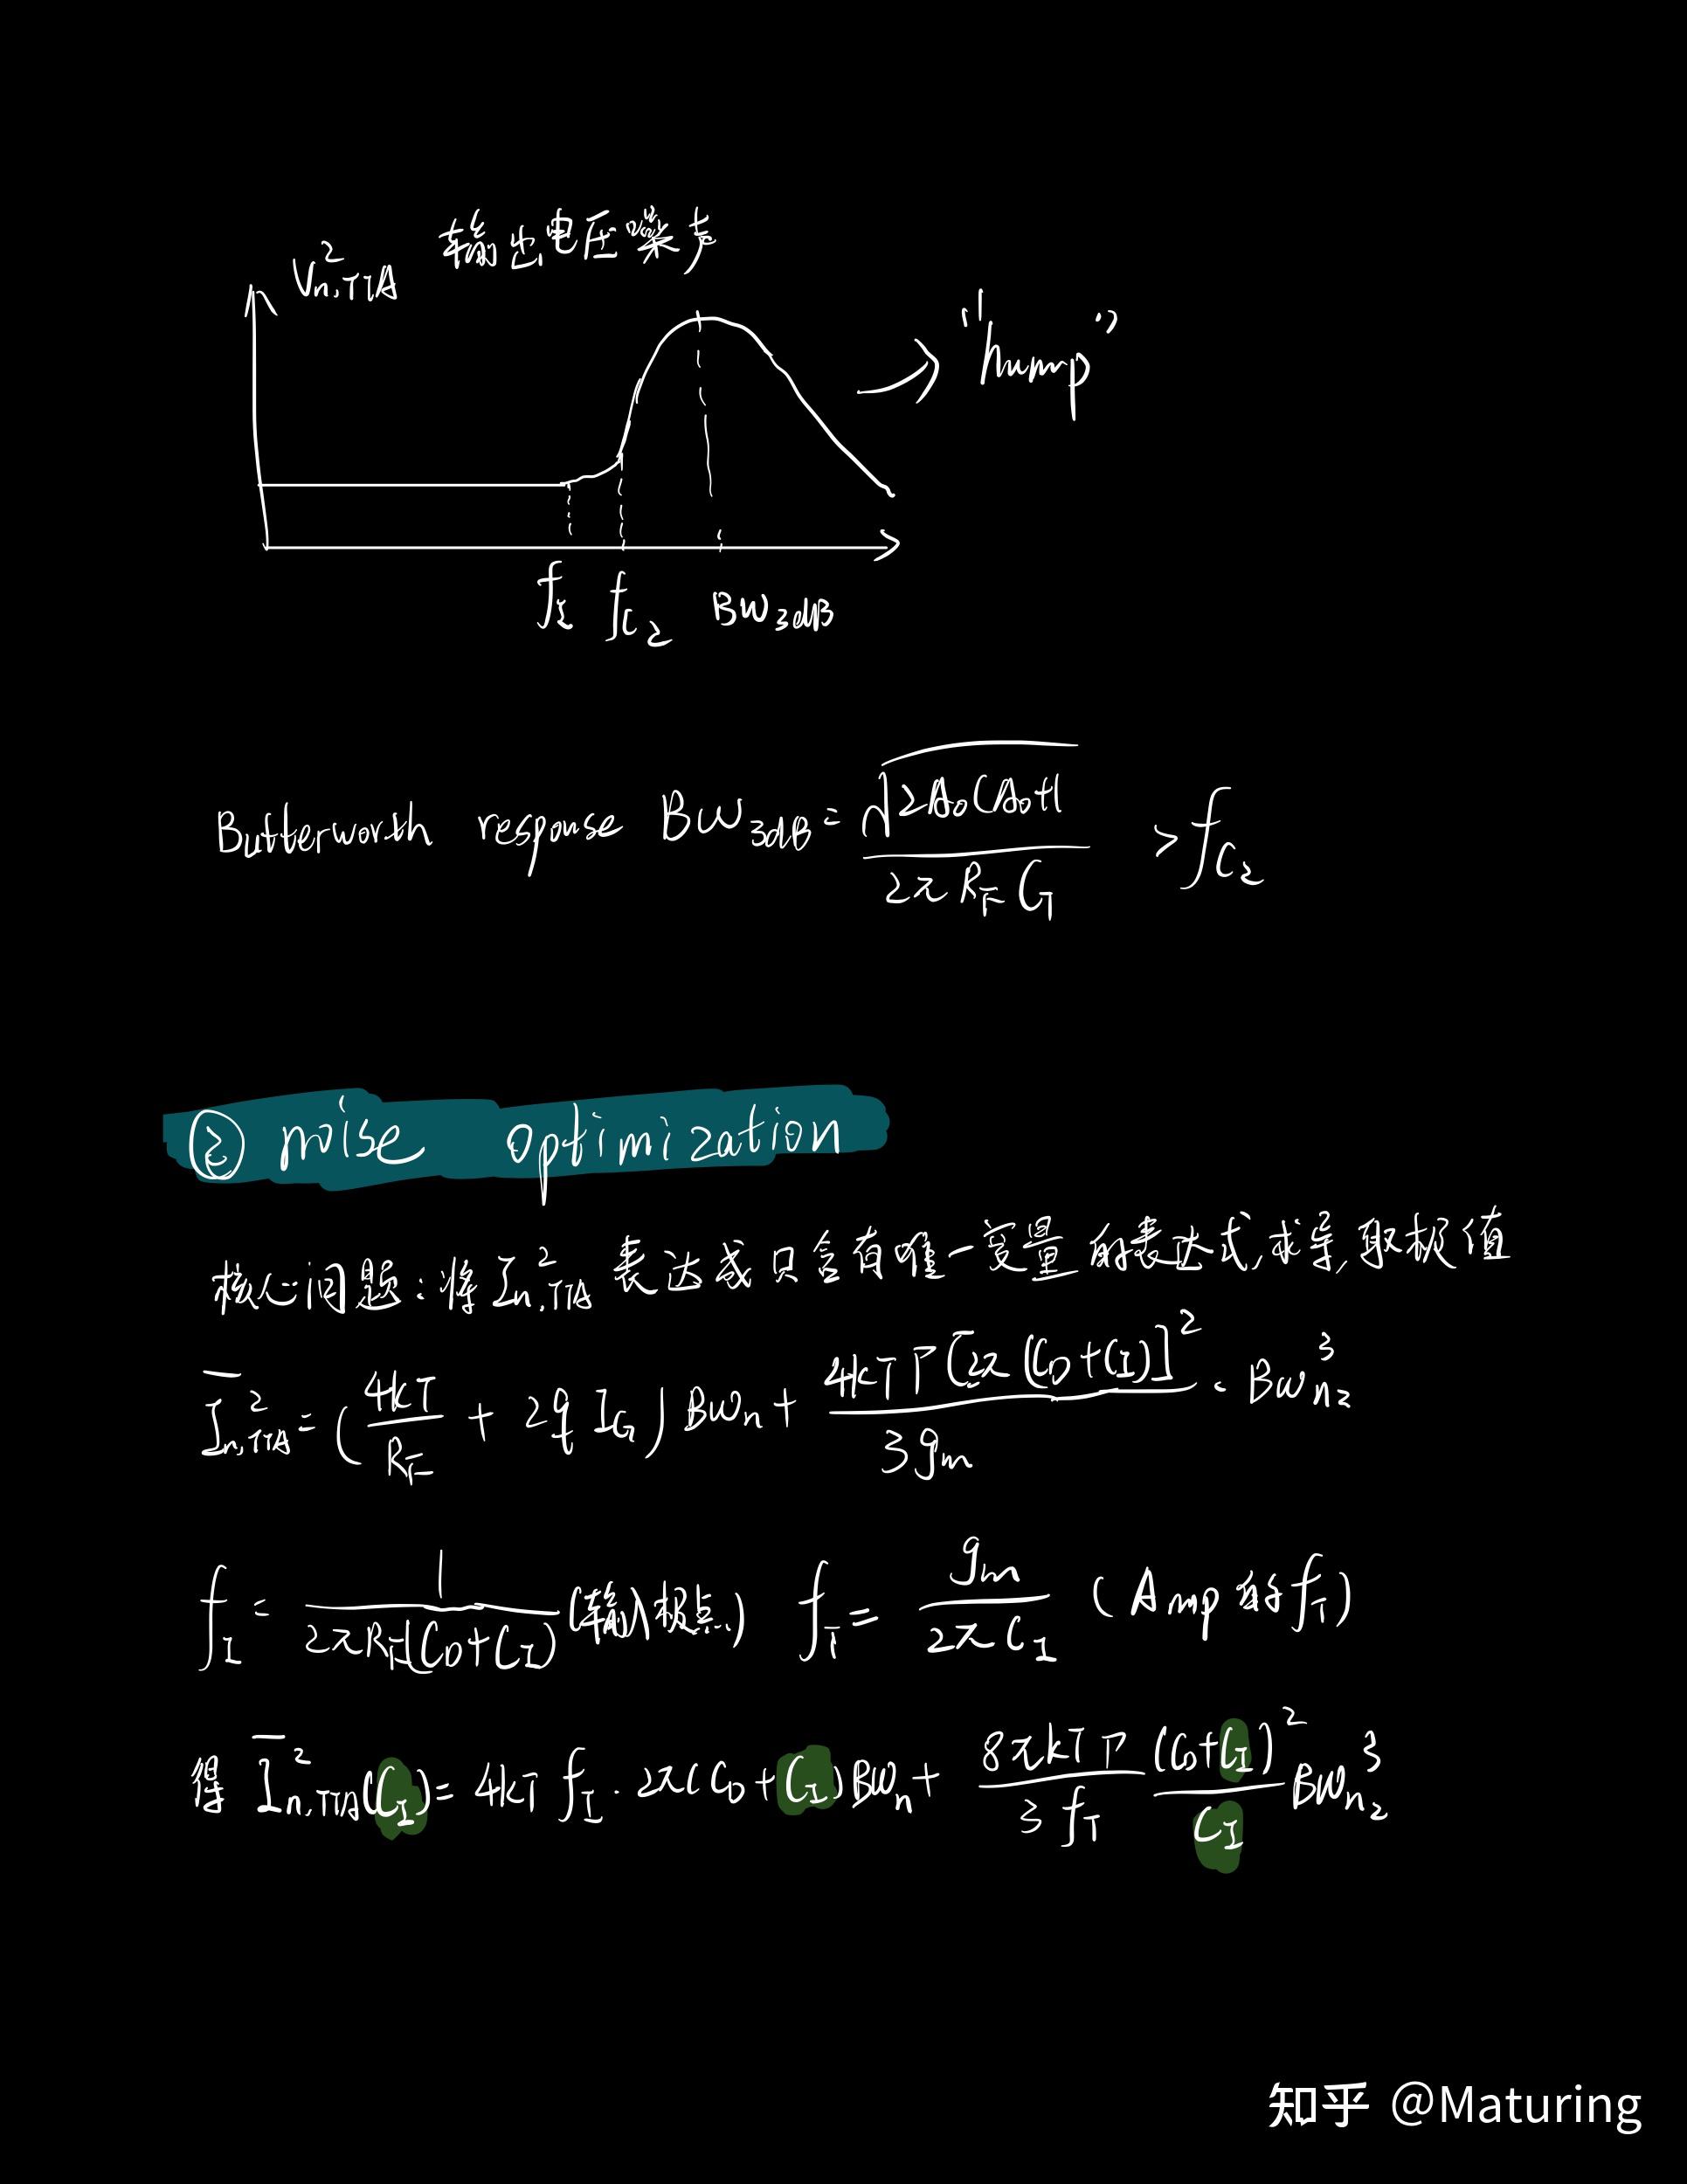 V²n,TIA 输出电压噪声
"hump"
f_I f_C2 BW_3dB
Butterworth response BW_3dB = √(2A₀(A₀+1 / 2πR_F C_I > f_C2
② noise optimization
核心问题:将 I²n,TIA 表达成只含有唯一变量的表达式,求导,取极值
I̅²n,TIA = (4kT/R_F + 2q I_G) BW_n + 4kTΓ[2π(C_D+C_I)]²/3g_m · BW³_n2
f_I = 1/2πR_F(C_D+C_I) (输入极点) f_T = g_m/2πC_I (Amp的f_T)
得 I̅²n,TIA(C_I) = 4kT f_I · 2π(C_D+C_I)BW_n + 8πkTΓ/3f_T (C_D+C_I)²/C_I BW³_n2
知乎 @Maturing